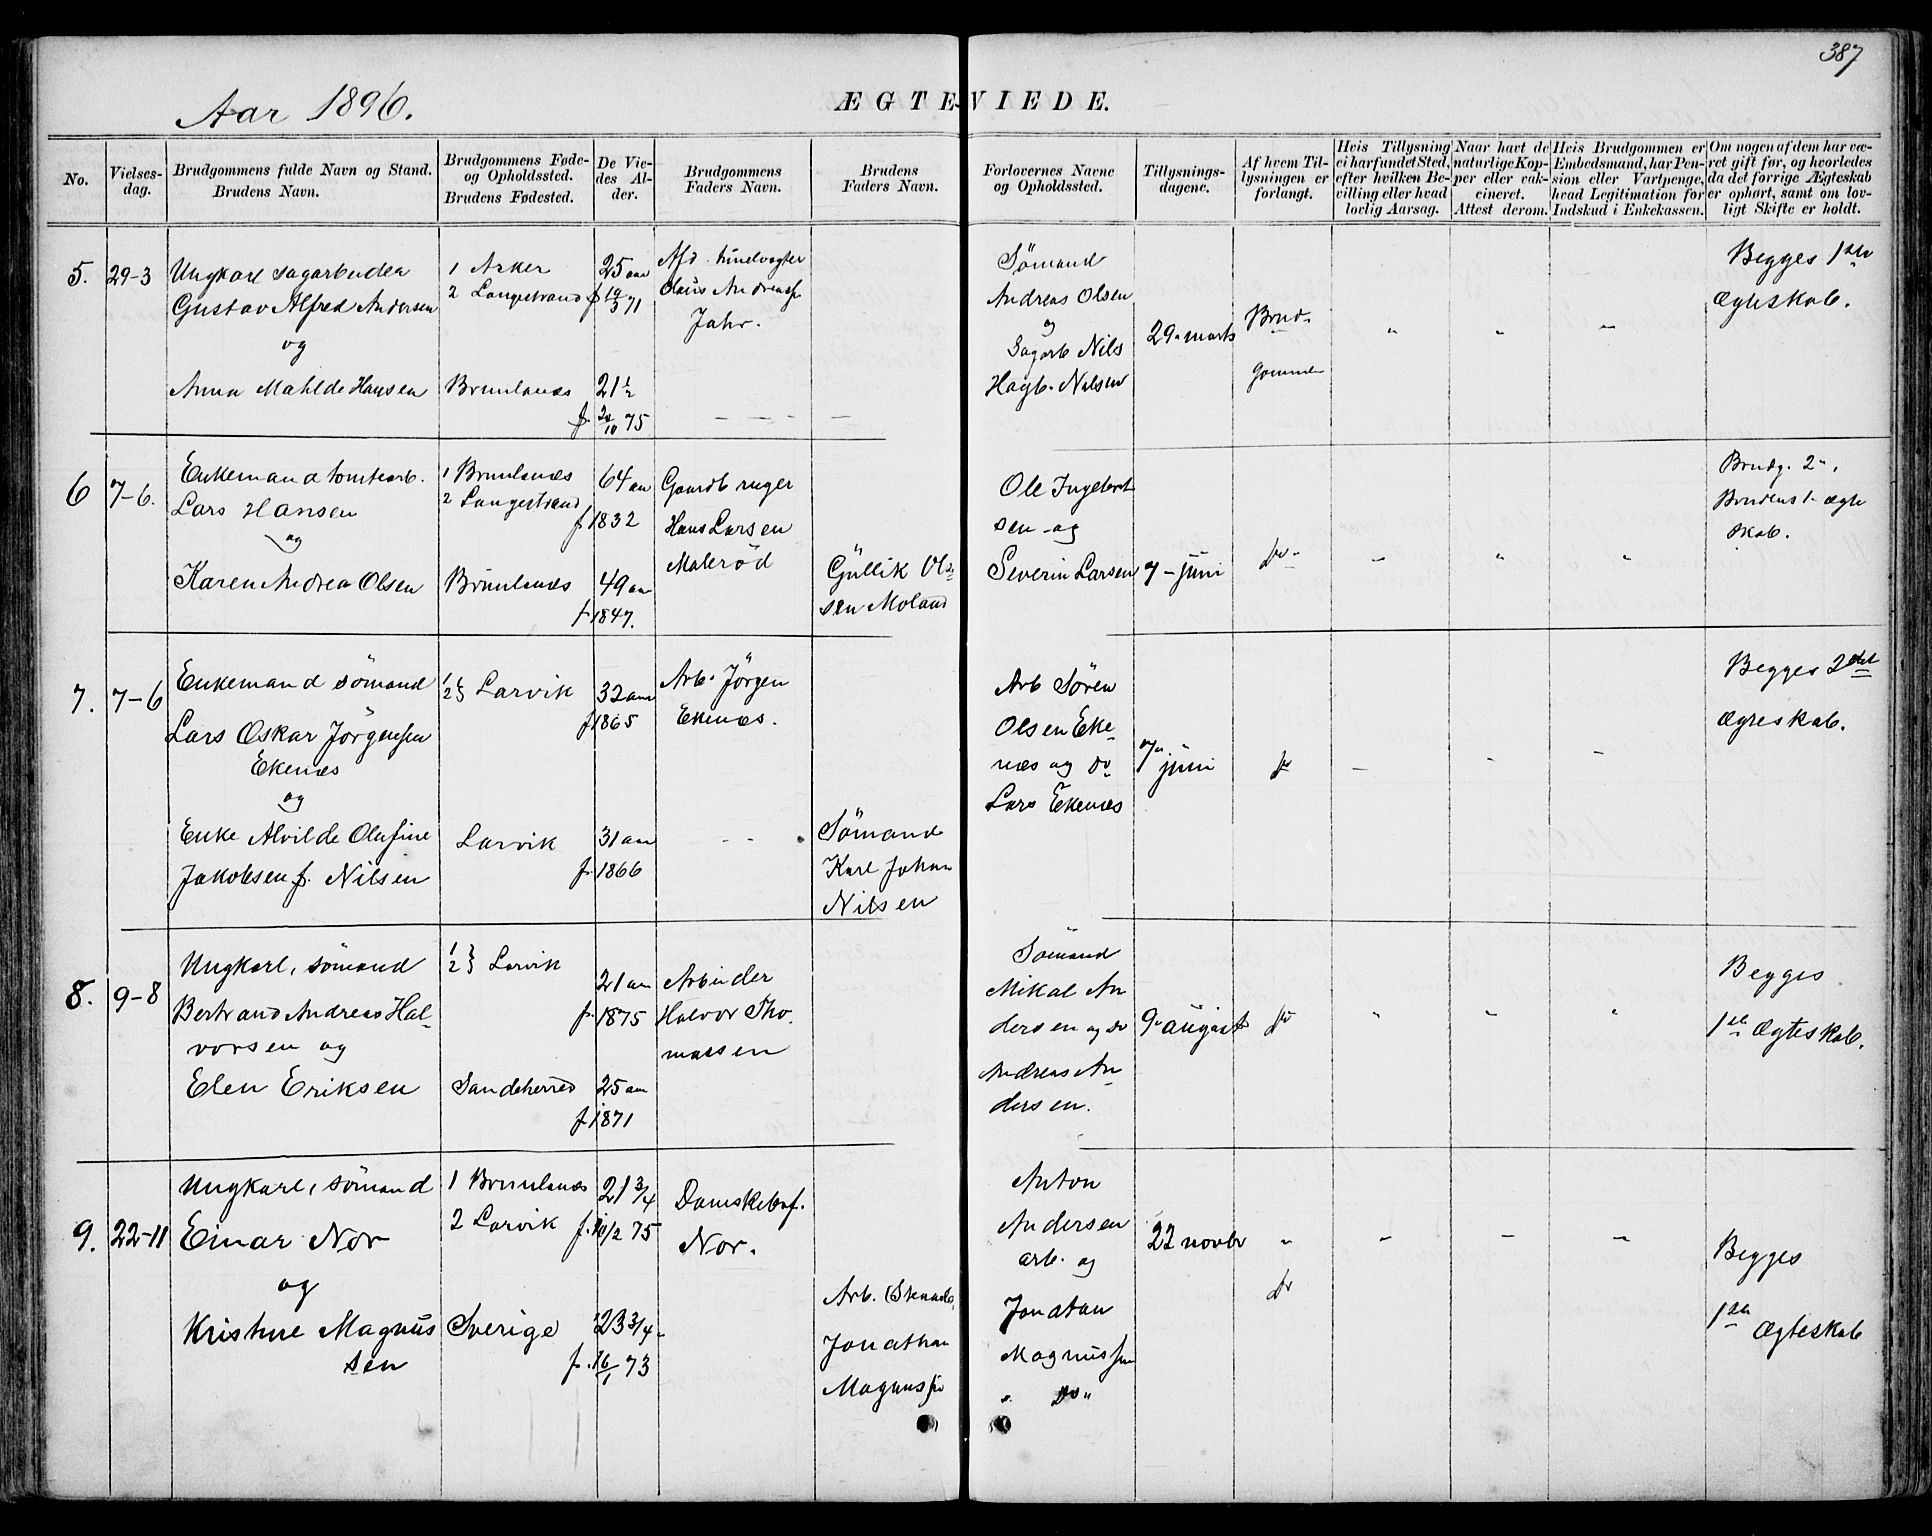 387
Aar 1896.
ÆGTEVIEDE.
No.
Vielses-
dag.
Brudgommens fulde Navn og Stand.
Brudens Navn.
Brudgommens Føde-
og Opholdssted.
Brudens Fødested.
De Vie-
des Al-
der.
Brudgommens
Faders Navn.
Brudens
Faders Navn.
Forlovernes Navne
og Opholdssted.
Tillysnings-
dagene.
Af hvem Til-
lysningen er
forlangt.
Hvis Tillysning
ei har fundet Sted,
efter hvilken Be-
villing eller hvad
lovlig Aarsag.
Naar havt de
naturlige Kop-
per eller vak-
cineret.
Attest derom.
Hvis Brudgommen er
Embedsmand, har Pen-
sion eller Vartpenge,
hvad Legitimation for
Indskud i Enkekassen.
Om nogen af dem har væ-
ret gift før, og hvorledes
da det forrige Ægteskab
er ophørt, samt om lov-
ligt Skifte er holdt.
5.
29-3
Ungkarl sagarbeider
Gustav Alfred Andersen
og
Anna Mahlde Hansen
1 Asker
2 Langestrand
Brunlanæs
25 aar
f 19/3 71
21 1/2
f. 20/10 75
Afd.
Olaus Andreass
Jahr.
Sømand
Andreas Olsen
og
Sagarb Nils
Hagb. Nilsen
29. marts
Brud-
gommen
Begges 1ste
Ægteskab.
6
7-6.
Enkemand tomtearb.
Lars Hansen
og
Karen Andrea Olsen
1 Brunlanæs
2 Langestrand
Brunlanæs
64 aar
f 1832
49 aar
f 1847.
Gaardbruger
Hans Larsen
Malerød
Gullik Ol-
sen Moland
Ole Ingebret
sen og
Severin Larsen
7-juni
do
Brudg. 2",
Brudens 1- Ægte
skab.
7.
7-6
Enkemand sömand
Lars Oskar Jörgensen
Ekenæs
og
Enke Alvilde Olufine
Jakobsen f. Nilsen
1/2} Larvik
Larvik
32 aar
f 1865
31 aar
f. 1866
Arb. Jörgen
Ekenæs.
Sömand
Karl Johan
Nilsen
Arb Sören
Olsen Eke-
næs og do
Lars Ekenæs
7"
juni
do
Begges 2det
Ægteskab.
8.
9-8
Ungkarl, sömand
Bertrand Andreas Hal-
vorsen og
Elen Eriksen
1/2} Larvik
Sandeherred
21 aar
f. 1875
25 aar
f. 1871
Arbeider
Halvor Tho-
massen
Sömand
Mikal An
dersen og do
Andreas An-
dersen.
9. august
do
Begges
1ste Ægteskab.
9.
22-11
Ungkarl, sömand
Einar Nor
og
Kristine Magnus
sen
1 Brunlanæs
2 Larvik
Sverige
21 3/4
f. 10/2 75
23 3/4
f. 16/1 73
Nor.
Arb.
Jonathan
Magnussen
Anton
Andersen
arb. og
Jonatan
Magnussen
" Do "
22 novbr
"
do
Begges
1ste Ægteskab